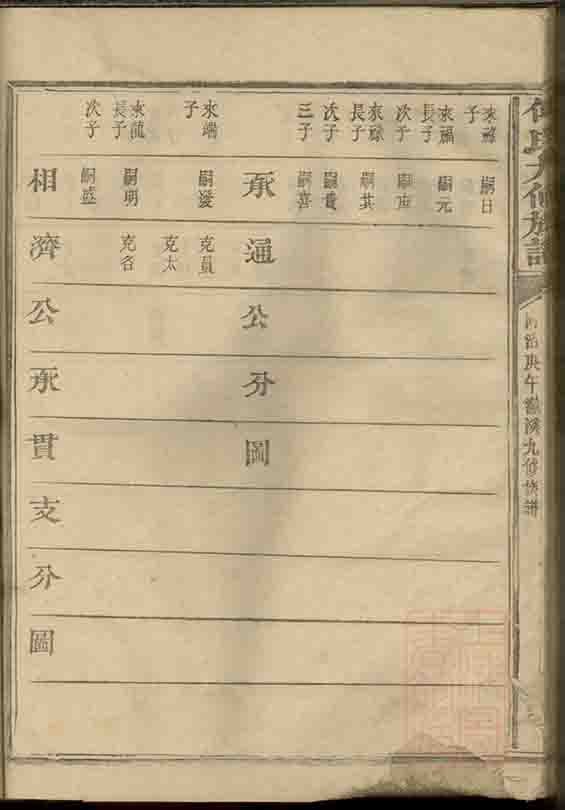 何氏九修族譜
同治庚午濟陽九修族譜
來祿子 嗣日
來福長子 嗣元
次子
來祿長子 嗣其
次子 嗣貴
三子 嗣喜
承通公分圖
來瑞子 嗣發 克員
克太
來龍長子 嗣明 克名
次子 嗣盛
相濟公承貫支分圖